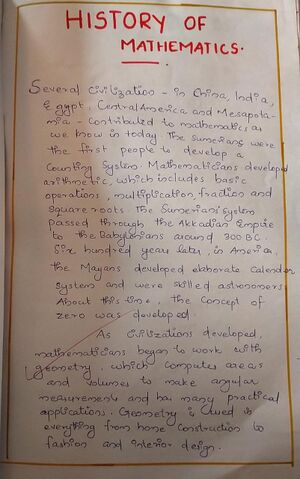 HISTORY OF
MATHEMATICS.
Several Civilization - in China, India,
Egypt, Central America and Mesopota-
mia - contributed to mathematics as
we know in today. The Sumerians were
the first people to develop a
Counting System. Mathematicians developed
arithmetic, which includes basic
operations, multiplication, fraction and
square roots. The Sumerians' System
passed through the Akkadian Empire
to the Babylonians around 300 BC.
Six hundred years later, in America,
the Mayans developed elaborate Calender
system and were skilled astronomers.
About this time, the concept of
zero was developed.
As civilizations developed,
mathematicians began to work with
geometry, which computes areas
and volumes to make angular
measurements and has many practical
applications. Geometry is used in
everything from home construction to
fashion and interior design.